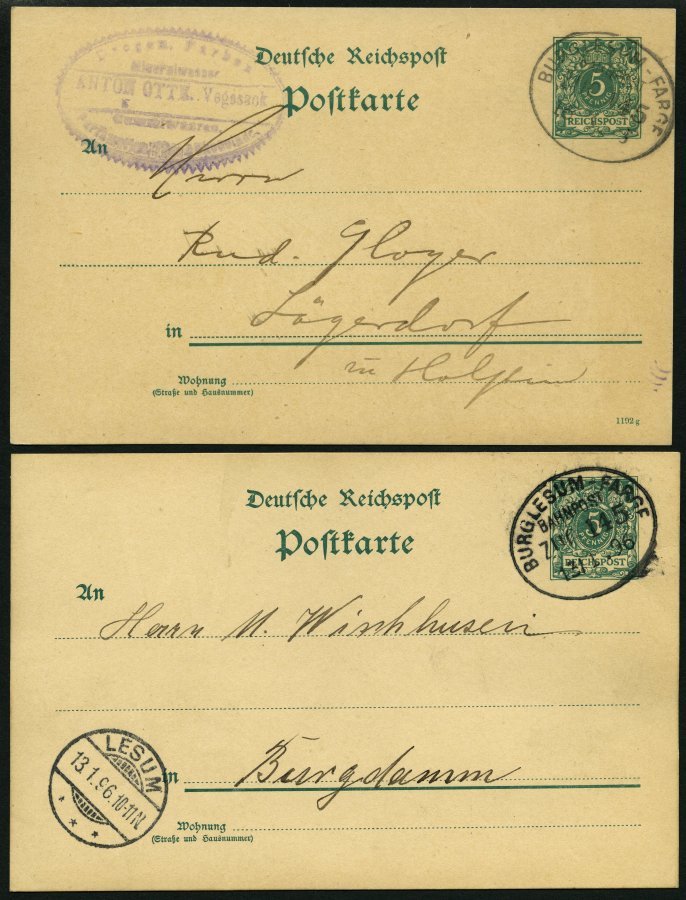 Drogen, Farben
Mineralwasser
ANTON OTTE, Vegesack
Deutsche Reichspost
Postkarte
BURGLESUM-FARGE
5
PFENNIG
REICHSPOST
An
Herrn
Rud. Gloyer
in Lägerdorf
in Holstein
Wohnung
(Straße und Hausnummer)
1192 g
Deutsche Reichspost
Postkarte
BURGLESUM FARGE
BAHNPOST
ZUG 145
96
5
PFENNIG
REICHSPOST
An
Herrn M. Wischhusen
in Burgdamm
LESUM
13.1.96.10-11N
Wohnung
(Straße und Hausnummer)